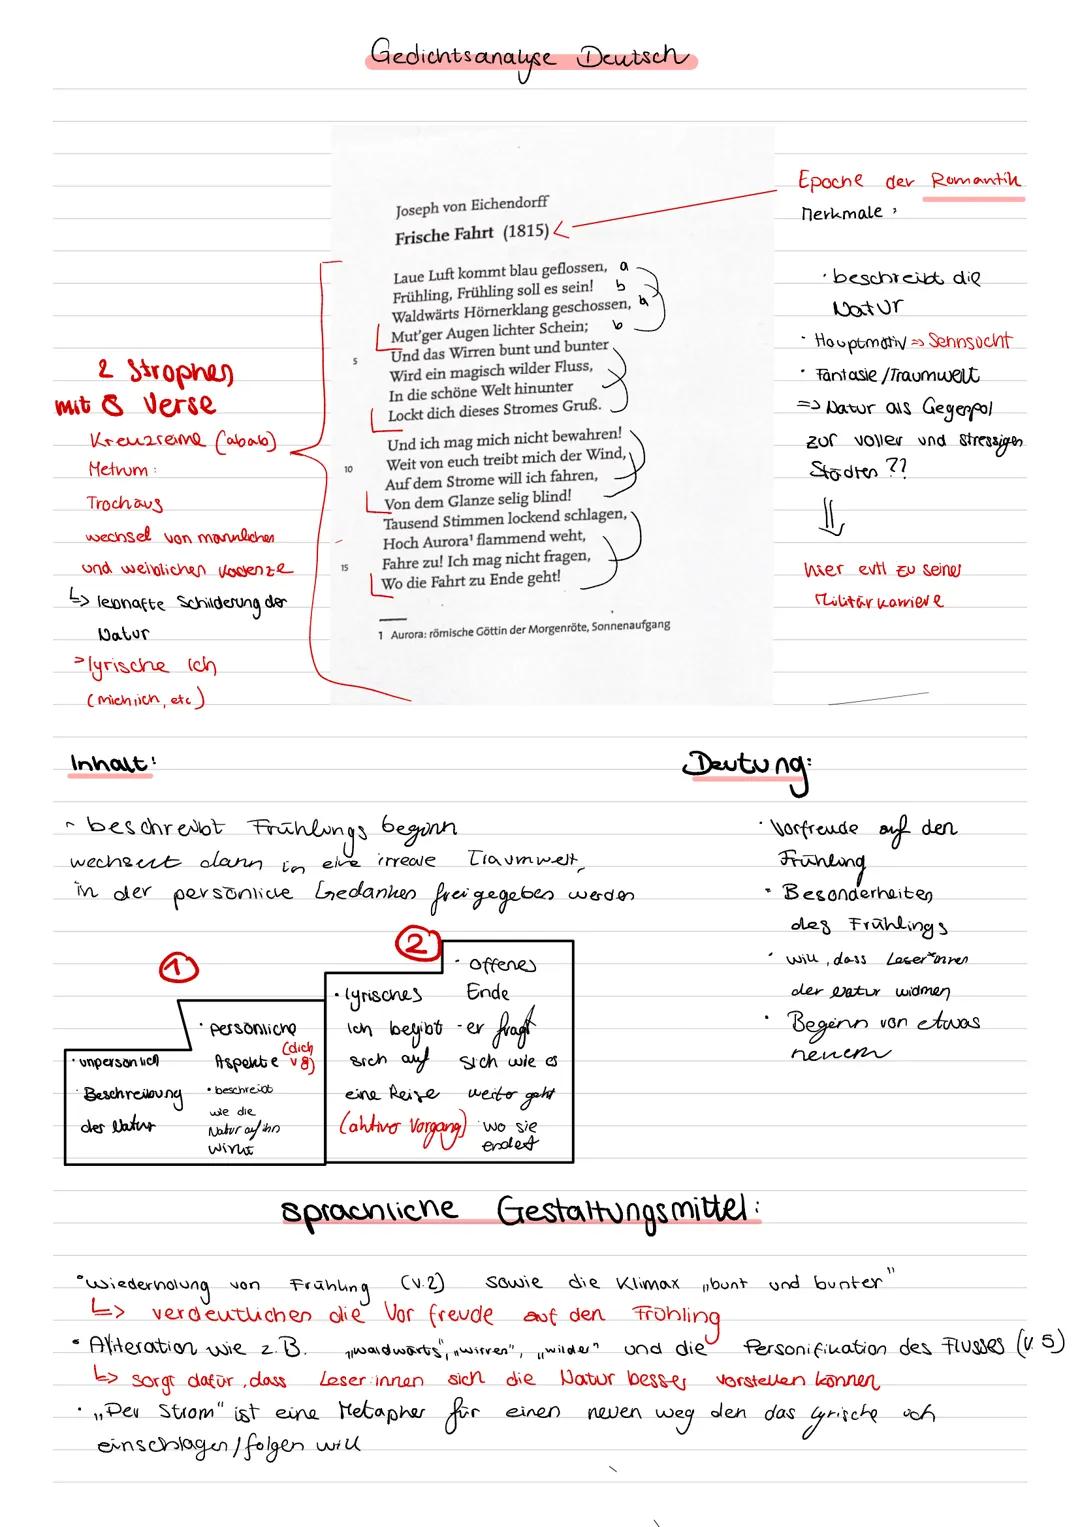 Gedichtsanalyse Deutsch
Joseph von Eichendorff
Frische Fahrt (1815)
Laue Luft kommt blau geflossen, a
Frühling, Frühling soll es sein! b
Waldwärts Hörnerklang geschossen, a
Mut'ger Augen lichter Schein; b
5 Und das Wirren bunt und bunter
Wird ein magisch wilder Fluss,
In die schöne Welt hinunter
Lockt dich dieses Stromes Gruß.
Und ich mag mich nicht bewahren!
10 Weit von euch treibt mich der Wind,
Auf dem Strome will ich fahren,
Von dem Glanze selig blind!
Tausend Stimmen lockend schlagen,
Hoch Aurora¹ flammend weht,
15 Fahre zu! Ich mag nicht fragen,
Wo die Fahrt zu Ende geht!
1 Aurora: römische Göttin der Morgenröte, Sonnenaufgang
2 Strophen
mit 8 Verse
Kreuzreime (abab)
Metrum:
Trochäus
wechsel von männlichen
und weiblichen Kadenze
↳ lebhafte Schilderung der
Natur
> lyrische Ich
(mich, ich, etc)
Epoche der Romantik
Merkmale:
· beschreibt die
Natur
· Hauptmotiv => Sehnsucht
· Fantasie / Traumwelt
=> Natur als Gegenpol
zur voller und stressigen
Städten ??
⇓
hier evtl zu seiner
Militärkarriere
Inhalt:
- beschreibt Frühlings beginn
wechselt dann in eine irreale Traumwelt,
in der persönliche Gedanken freigegeben werden
1
· unpersönlich
· Beschreibung
der Natur
· persönliche
Aspekte (dich v 8)
· beschreibt
wie die
Natur auf ihn
wirkt
2
· lyrisches
Ich begibt
sich auf
eine Reise
(aktiver Vorgang)
· offenes
Ende
- er fragt
sich wie es
weiter geht
wo sie
endet
Deutung:
· Vorfreude auf den
Frühling
· Besonderheiten
des Frühlings
· will, dass Leser*innen
der Natur widmen
· Beginn von etwas
neuem
sprachliche Gestaltungsmittel:
· Wiederholung von Frühling (V.2) sowie die Klimax „bunt und bunter"
↳ verdeutlichen die Vor freude auf den Frühling
· Aliteration wie z.B. „waldwärts", „wirren", „wilder" und die Personifikation des Flusses (V. 5)
↳ sorgt dafür, dass Leser:innen sich die Natur besser vorstellen können
· „Der Strom" ist eine Metapher für einen neuen weg den das lyrische ich
einschlagen / folgen will